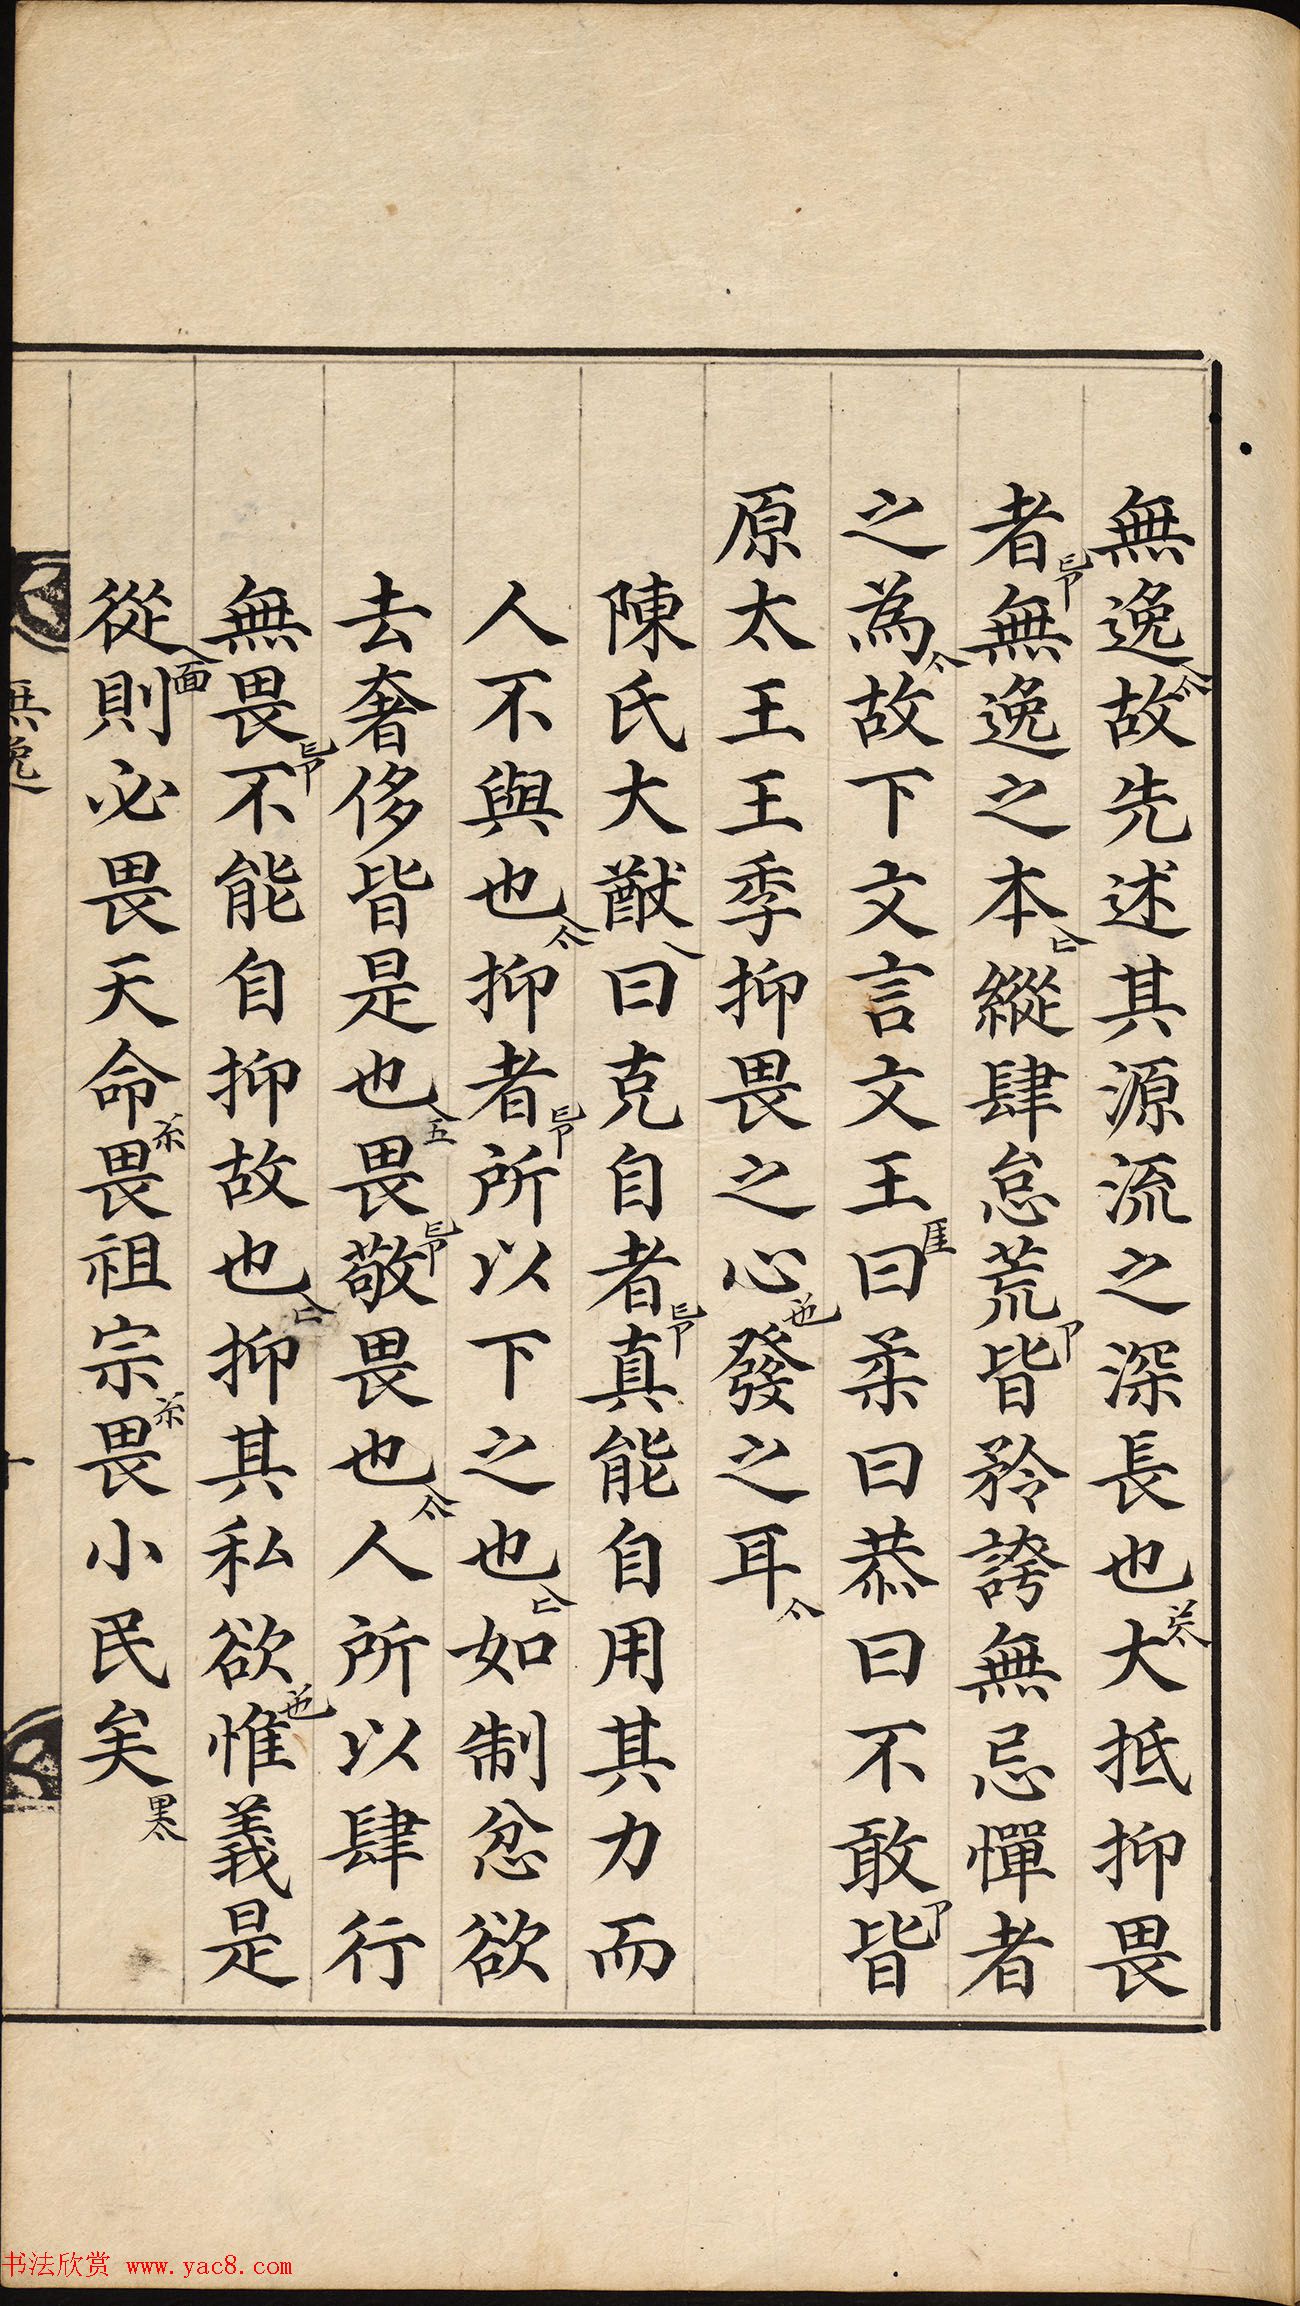 無逸故先述其源流之深長也大抵抑畏
者無逸之本縱肆怠荒皆矜誇無忌憚者
之為故下文言文王曰柔曰恭曰不敢皆
原太王王季抑畏之心發之耳
陳氏大猷曰克自者真能自用其力而
人不與也抑者所以下之也如制忿欲
去奢侈皆是也畏敬畏也人所以肆行
無畏不能自抑故也抑其私欲惟義是
從則必畏天命畏祖宗畏小民矣
無逸
书法欣赏 www.yac8.com